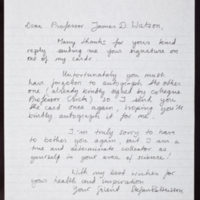 Dear Professor James D. Watson,
Many thanks for your kind
reply sending me your signature on
one of my cards.
Unfortunately you must
have forgotten to autograph the other
one (already kindly signed by collegue
Professor Crick) So I send you
the card once again, hoping you'll
kindly autograph it for me!
I am truly sorry to have
to bother you again, but I am a
true and discriminate collector as
yourself in your area of science!
With my best wishes for
your health and inspiration
Your friend